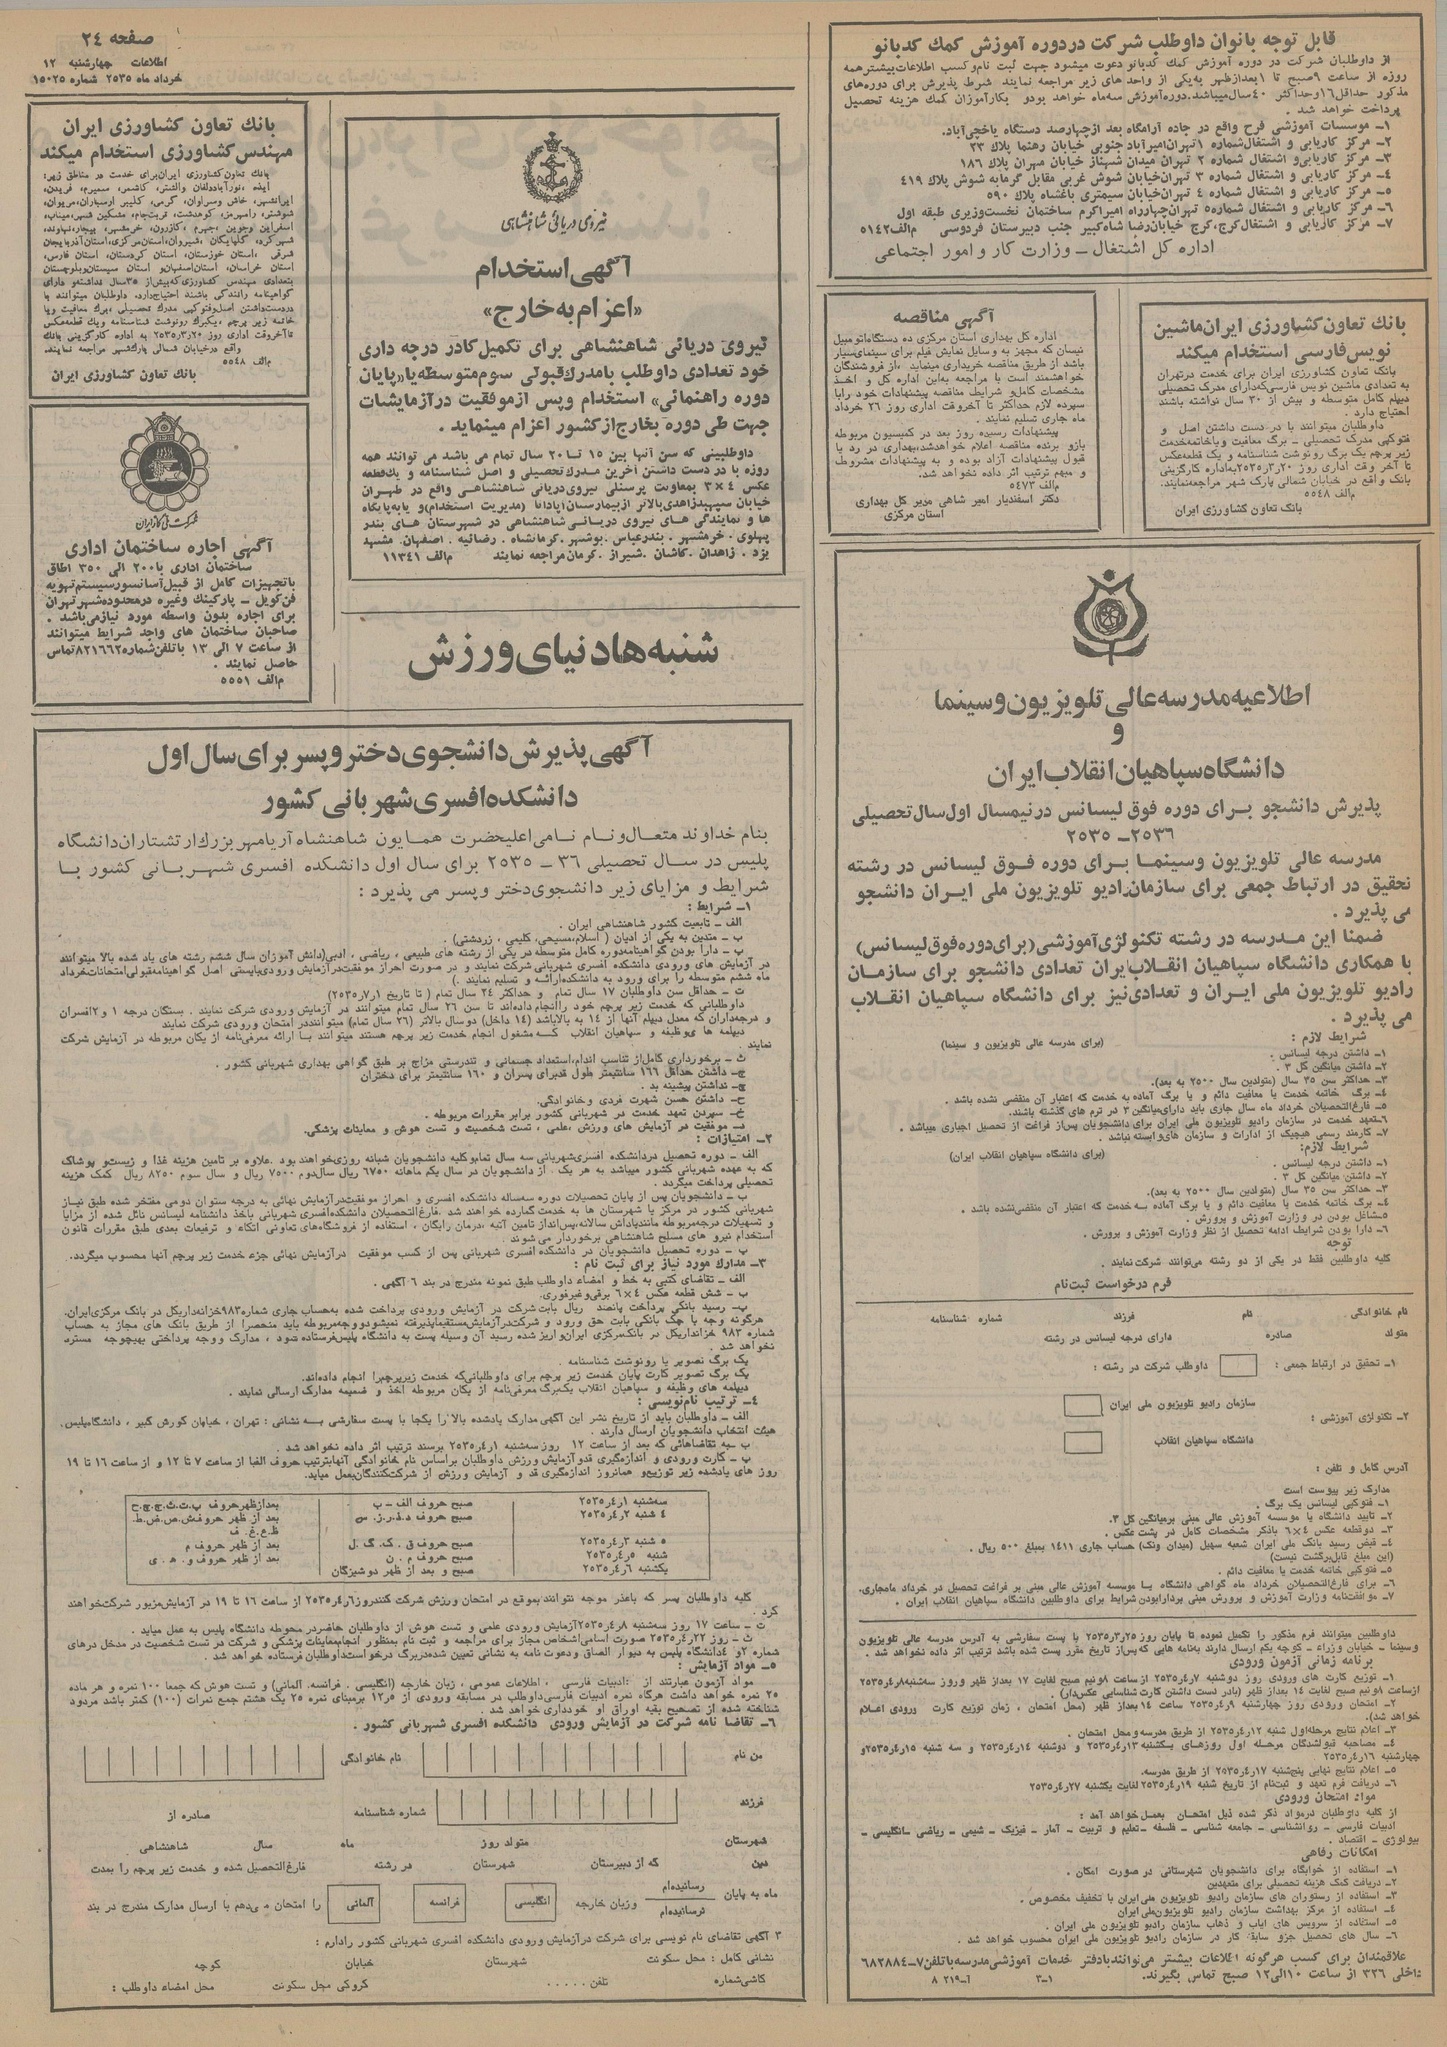 صفحه ٢٤
اطلاعات چهارشنبه ١٢
خرداد ماه ٢٥٣٥ شماره ١٥٠٢٥
قابل توجه بانوان داوطلب شرکت در دوره آموزش کمک کدبانو
از داوطلبان شرکت در دوره آموزش کمک کدبانو دعوت میشود جهت ثبت نام و کسب اطلاعات بیشتر همه
روزه از ساعت ٩ صبح تا ١ بعدازظهر به یکی از واحد های زیر مراجعه نمایند شرط پذیرش برای دوره‌های
مذکور حداقل ١٦ و حداکثر ٤٠ سال میباشد. دوره آموزش سه ماه خواهد بود و بکارآموزان کمک هزینه تحصیل
پرداخت خواهد شد .
١ـ موسسات آموزشی فرح واقع در جاده آرامگاه بعد از چهارصد دستگاه یاخچی‌آباد.
٢ـ مرکز کاریابی و اشتغال شماره ١ تهران امیرآباد جنوبی خیابان رهنما پلاک ٣٣
٣ـ مرکز کاریابی و اشتغال شماره ٢ تهران میدان شهناز خیابان مهران پلاک ١٨٦
٤ـ مرکز کاریابی و اشتغال شماره ٣ تهران خیابان شوش غربی مقابل گرمابه شوش پلاک ٤١٩
٥ـ مرکز کاریابی و اشتغال شماره ٤ تهران خیابان سیمتری باغشاه پلاک ٥٩٠
٦ـ مرکز کاریابی و اشتغال شماره ٥ تهران چهارراه امیراکرم ساختمان نخست‌وزیری طبقه اول
٧ـ مرکز کاریابی و اشتغال کرج، کرج خیابان رضا شاه کبیر جنب دبیرستان فردوسی م‌الف ٥١٤٢
اداره کل اشتغال ـ وزارت کار و امور اجتماعی
بانک تعاون کشاورزی ایران ماشین
نویس فارسی استخدام میکند
بانک تعاون کشاورزی ایران برای خدمت در تهران
به تعدادی ماشین نویس فارسی که دارای مدرک تحصیلی
دیپلم کامل متوسطه و بیش از ٣٠ سال نداشته باشند
احتیاج دارد .
داوطلبان میتوانند با در دست داشتن اصل و
فتوکپی مدرک تحصیلی ـ برگ معافیت و یا خاتمه خدمت
زیر پرچم یک برگ رونوشت شناسنامه و یک قطعه عکس
تا آخر وقت اداری روز ٢٥٣٥ر٣ر٢٠ به اداره کارگزینی
بانک واقع در خیابان شمالی پارک شهر مراجعه نمایند.
م‌الف ٥٥٤٨
بانک تعاون کشاورزی ایران
آگهی مناقصه
اداره کل بهداری استان مرکزی ده دستگاه اتومبیل
نیسان که مجهز به وسایل نمایش فیلم برای سینمای سیار
باشد از طریق مناقصه خریداری مینماید ،از فروشندگان
خواهشمند است با مراجعه به این اداره کل و اخذ
مشخصات کامل و شرایط مناقصه پیشنهادات خود را با
سپرده لازم حداکثر تا آخر وقت اداری روز ٢٦ خرداد
ماه جاری تسلیم نمایند .
پیشنهادات رسیده روز بعد در کمیسیون مربوطه
بازو برنده مناقصه اعلام خواهد شد، بهداری در رد یا
قبول پیشنهادات آزاد بوده و به پیشنهادات مشروط
و مبهم ترتیب اثر داده نخواهد شد.
م‌الف ٥٤٧٣
دکتر اسفندیار امیر شاهی مدیر کل بهداری
استان مرکزی
نیروی دریائی شاهنشاهی
آگهی استخدام
«اعزام به خارج»
نیروی دریائی شاهنشاهی برای تکمیل کادر درجه داری
خود تعدادی داوطلب با مدرک قبولی سوم متوسطه یا «پایان
دوره راهنمائی» استخدام و پس از موفقیت در آزمایشات
جهت طی دوره بخارج از کشور اعزام مینماید .
داوطلبینی که سن آنها بین ١٥ تا ٢٠ سال تمام می باشد می توانند همه
روزه با در دست داشتن آخرین مدرک تحصیلی و اصل شناسنامه و یک قطعه
عکس ٤ × ٣ بمعاونت پرسنلی نیروی دریائی شاهنشاهی واقع در طهران
خیابان سپهبد زاهدی بالاتر از بیمارستان آپادانا (مدیریت استخدام) و یا به پایگاه
ها و نمایندگی های نیروی دریائی شاهنشاهی در شهرستان های بندر
پهلوی . خرمشهر . بندرعباس . بوشهر . کرمانشاه . رضائیه . اصفهان . مشهد
یزد . زاهدان . کاشان . شیراز . کرمان مراجعه نمایند م‌الف ١١٣٤١
شنبه‌ها دنیای ورزش
بانک تعاون کشاورزی ایران
مهندس کشاورزی استخدام میکند
بانک تعاون کشاورزی ایران برای خدمت در مناطق زیر:
شرقی ،استان خوزستان، استان کردستان، استان فارس،
استان خراسان، استان اصفهان و استان سیستان و بلوچستان
بتعدادی مهندس کشاورزی که بیش از ٣٥ سال نداشته و دارای
گواهینامه رانندگی باشند احتیاج دارد. داوطلبان میتوانند با
در دست داشتن اصل و فتوکپی مدرک تحصیلی ،برگ معافیت و یا
خاتمه زیر پرچم ،یکبرگ رونوشت شناسنامه و یک قطعه عکس
تا آخر وقت اداری روز ٢٥٣٥ر٣ر٢٠ به اداره کارگزینی بانک
واقع در خیابان شمالی پارک شهر مراجعه نمایند.
م‌الف ٥٥٤٨
بانک تعاون کشاورزی ایران
شرکت ملی گاز ایران
آگهی اجاره ساختمان اداری
ساختمان اداری با ٢٠٠ الی ٣٥٠ اطاق
با تجهیزات کامل از قبیل آسانسور سیستم تهویه
فن کویل ـ پارکینگ و غیره در محدوده شهر تهران
برای اجاره بدون واسطه مورد نیاز می‌باشد .
صاحبان ساختمان های واجد شرایط میتوانند
از ساعت ٧ الی ١٣ با تلفن شماره ٨٢١٦٦٢ تماس
حاصل نمایند .
م‌الف ٥٥٥١
اطلاعیه مدرسه عالی تلویزیون و سینما
و
دانشگاه سپاهیان انقلاب ایران
پذیرش دانشجو برای دوره فوق لیسانس در نیمسال اول سال تحصیلی
٢٥٣٦ـ ٢٥٣٥
مدرسه عالی تلویزیون و سینما برای دوره فوق لیسانس در رشته
تحقیق در ارتباط جمعی برای سازمان رادیو تلویزیون ملی ایران دانشجو
می پذیرد .
ضمنا این مدرسه در رشته تکنولژی آموزشی (برای دوره فوق لیسانس)
با همکاری دانشگاه سپاهیان انقلاب ایران تعدادی دانشجو برای سازمان
رادیو تلویزیون ملی ایران و تعدادی نیز برای دانشگاه سپاهیان انقلاب
می پذیرد .
شرایط لازم : (برای مدرسه عالی تلویزیون و سینما)
١ـ داشتن درجه لیسانس .
٢ـ داشتن میانگین کل ٣ .
٣ـ حداکثر سن ٣٥ سال (متولدین سال ٢٥٠٠ به بعد).
٤ـ برگ خاتمه خدمت یا معافیت دائم و یا برگ آماده به خدمت که اعتبار آن منقضی نشده باشد .
٥ـ فارغ‌التحصیلان خرداد ماه سال جاری باید دارای میانگین ٣ در ترم های گذشته باشند.
٦ـ تعهد خدمت در سازمان رادیو تلویزیون ملی ایران برای دانشجویان پس از فراغت از تحصیل اجباری میباشد .
٧ـ کارمند رسمی هیچیک از ادارات و سازمان های وابسته نباشد .
شرایط لازم: (برای دانشگاه سپاهیان انقلاب ایران)
١ـ داشتن درجه لیسانس .
٢ـ داشتن میانگین کل ٣ .
٣ـ حداکثر سن ٣٥ سال (متولدین سال ٢٥٠٠ به بعد).
٤ـ برگ خاتمه خدمت یا معافیت دائم و یا برگ آماده به خدمت که اعتبار آن منقضی نشده باشد .
٥ـ شاغل بودن در وزارت آموزش و پرورش .
٦ـ دارا بودن شرایط ادامه تحصیل از نظر وزارت آموزش و پرورش .
توجه
کلیه داوطلبین فقط در یکی از دو رشته می‌توانند شرکت نمایند .
فرم درخواست ثبت‌نام
نام خانوادگی نام فرزند شماره شناسنامه
متولد صادره دارای درجه لیسانس در رشته
١ـ تحقیق در ارتباط جمعی : داوطلب شرکت در رشته :
سازمان رادیو تلویزیون ملی ایران
٢ـ تکنولژی آموزشی :
دانشگاه سپاهیان انقلاب
آدرس کامل و تلفن :
مدارک زیر پیوست است
١ـ فتوکپی لیسانس یک برگ .
٢ـ تایید دانشگاه یا موسسه آموزش عالی مبنی بر میانگین کل ٣.
٣ـ دو قطعه عکس ٤×٦ با ذکر مشخصات کامل در پشت عکس .
٤ـ قبض رسید بانک ملی ایران شعبه سهیل (میدان ونک) حساب جاری ١٤١١ بمبلغ ٥٠٠ ریال .
(این مبلغ قابل برگشت نیست)
٥ـ فتوکپی خاتمه خدمت یا معافیت دائم .
٦ـ برای فارغ‌التحصیلان خرداد ماه گواهی دانشگاه یا موسسه آموزش عالی مبنی بر فراغت تحصیل در خرداد ماه جاری.
٧ـ موافقتنامه وزارت آموزش و پرورش مبنی بر دارا بودن شرایط برای داوطلبین دانشگاه سپاهیان انقلاب ایران .
داوطلبین میتوانند فرم مذکور را تکمیل نموده تا پایان روز ٢٥٣٥ر٣ر٢٥ با پست سفارشی به آدرس مدرسه عالی تلویزیون
وسینما ـ خیابان وزراء ـ کوچه یکم ارسال دارند به نامه هایی که پس از تاریخ مقرر پست شده باشد ترتیب اثر داده نخواهد شد .
برنامه زمانی آزمون ورودی
١ـ توزیع کارت های ورودی روز دوشنبه ٢٥٣٥ر٤ر٧ از ساعت ٨ونیم صبح لغایت ١٧ بعداز ظهر و روز سه‌شنبه ٢٥٣٥ر٤ر٨
از ساعت ٨ونیم صبح لغایت ١٤ بعداز ظهر (با در دست داشتن کارت شناسایی عکس‌دار).
٢ـ امتحان ورودی روز چهارشنبه ٢٥٣٥ر٤ر٩ ساعت ١٤ بعداز ظهر (محل امتحان ، زمان توزیع کارت ورودی اعلام
خواهد شد).
٣ـ اعلام نتایج مرحله اول شنبه ٢٥٣٥ر٤ر١٢ از طریق مدرسه و محل امتحان .
٤ـ مصاحبه قبولشدگان مرحله اول روزهای یکشنبه ٢٥٣٥ر٤ر١٣ و دوشنبه ٢٥٣٥ر٤ر١٤ و سه شنبه ٢٥٣٥ر٤ر١٥ و
چهارشنبه ٢٥٣٥ر٤ر١٦
٥ـ اعلام نتایج نهایی پنج‌شنبه ٢٥٣٥ر٤ر١٧ از طریق مدرسه.
٦ـ دریافت فرم تعهد و ثبت‌نام از تاریخ شنبه ٢٥٣٥ر٤ر١٩ لغایت یکشنبه ٢٥٣٥ر٤ر٢٧
مواد امتحان ورودی
از کلیه داوطلبان در مواد ذکر شده ذیل امتحان بعمل خواهد آمد :
ادبیات فارسی ـ روانشناسی ـ جامعه شناسی ـ فلسفه ـ تعلیم و تربیت ـ آمار ـ فیزیک ـ شیمی ـ ریاضی ـ انگلیسی ـ
بیولوژی ـ اقتصاد .
امکانات رفاهی
١ـ استفاده از خوابگاه برای دانشجویان شهرستانی در صورت امکان .
٢ـ دریافت کمک هزینه تحصیلی برای متعهدین
٣ـ استفاده از رستوران های سازمان رادیو تلویزیون ملی ایران با تخفیف مخصوص .
٤ـ استفاده از مرکز بهداشت سازمان رادیو تلویزیون ملی ایران
٥ـ استفاده از سرویس های ایاب و ذهاب سازمان رادیو تلویزیون ملی ایران .
٦ـ سال های تحصیل جزو سابقه کار در سازمان رادیو تلویزیون ملی ایران محسوب خواهد شد .
علاقمندان برای کسب هرگونه اطلاعات بیشتر می‌توانند با دفتر خدمات آموزشی مدرسه با تلفن ٧ـ٦٨٢٨٨٤
داخلی ٣٣٦ از ساعت ١٠ الی ١٢ صبح تماس بگیرند. ١ـ٣ آـ٢١٩ ٨
آگهی پذیرش دانشجوی دختر و پسر برای سال اول
دانشکده افسری شهربانی کشور
بنام خداوند متعال و نام نامی اعلیحضرت همایون شاهنشاه آریامهر بزرگ ارتشتاران دانشگاه
پلیس در سال تحصیلی ٣٦ ـ ٢٥٣٥ برای سال اول دانشکده افسری شهربانی کشور با
شرایط و مزایای زیر دانشجوی دختر و پسر می پذیرد :
١ـ شرایط :
الف ـ تابعیت کشور شاهنشاهی ایران .
ب ـ متدین به یکی از ادیان ( اسلام،مسیحی، کلیمی ، زردشتی) .
پ ـ دارا بودن گواهینامه دوره کامل متوسطه در یکی از رشته های طبیعی ، ریاضی ، ادبی (دانش آموزان سال ششم رشته های یاد شده بالا میتوانند
در آزمایش های ورودی دانشکده افسری شهربانی شرکت نمایند و در صورت احراز موفقیت در آزمایش ورودی بایستی اصل گواهینامه قبولی امتحانات خرداد
ماه ششم متوسطه را برای ورود به دانشکده ارائه و تسلیم نمایند .)
ت ـ حداقل سن داوطلبان ١٧ سال تمام و حداکثر ٢٤ سال تمام ( تا تاریخ ٢٥٣٥ر٧ر١)
داوطلبانی که خدمت زیر پرچم خود را انجام داده‌اند تا سن ٢٦ سال تمام میتوانند در آزمایش ورودی شرکت نمایند . بستگان درجه ١ و ٢ افسران
و درجه‌داران که معدل دیپلم آنها از ١٤ به بالا باشد (١٤ داخل) دو سال بالاتر (٢٦ سال تمام) میتوانند در امتحان ورودی شرکت نمایند
دیپلمه های وظیفه و سپاهیان انقلاب که مشغول انجام خدمت زیر پرچم هستند میتوانند با ارائه معرفی‌نامه از یکان مربوطه در آزمایش شرکت
نمایند .
ث ـ برخورداری کامل از تناسب اندام، استعداد جسمانی و تندرستی مزاج بر طبق گواهی بهداری شهربانی کشور .
ج ـ داشتن حداقل ١٦٦ سانتیمتر طول قد برای پسران و ١٦٠ سانتیمتر برای دختران
چ ـ نداشتن پیشینه بد .
ح ـ داشتن حسن شهرت فردی و خانوادگی.
خ ـ سپردن تعهد خدمت در شهربانی کشور برابر مقررات مربوطه .
د ـ موفقیت در آزمایش های ورزش ،علمی ، تست شخصیت و تست هوش و معاینات پزشکی.
٢ـ امتیازات :
الف ـ دوره تحصیل در دانشکده افسری شهربانی سه سال تمام و کلیه دانشجویان شبانه روزی خواهند بود .علاوه بر تامین هزینه غذا و زیست و پوشاک
که به عهده شهربانی کشور میباشد به هر یک از دانشجویان در سال یکم ماهانه ٦٧٥٠ ریال سال دوم ٧٥٠٠ ریال و سال سوم ٨٢٥٠ ریال کمک هزینه
تحصیلی پرداخت میگردد .
ب ـ دانشجویان پس از پایان تحصیلات دوره سه‌ساله دانشکده افسری و احراز موفقیت در آزمایش نهائی به درجه ستوان دومی مفتخر شده طبق نیاز
شهربانی کشور در مرکز یا شهرستان ها به خدمت گمارده خواهند شد .فارغ‌التحصیلان دانشکده افسری شهربانی باخذ دانشنامه لیسانس نائل شده از مزایا
و تسهیلات درجه مربوطه مانند پاداش سالانه، پس‌انداز تامین آتیه ،درمان رایگان ، استفاده از فروشگاه‌های تعاونی اتکاء و ترفیعات بعدی طبق مقررات قانون
استخدام نیرو های مسلح شاهنشاهی برخوردار می شوند .
پ ـ دوره تحصیل دانشجویان در دانشکده افسری شهربانی پس از کسب موفقیت در آزمایش نهائی جزء خدمت زیر پرچم آنها محسوب میگردد.
٣ـ مدارک مورد نیاز برای ثبت نام :
الف ـ تقاضای کتبی به خط و امضاء داوطلب طبق نمونه مندرج در بند ٦ آگهی .
ب ـ شش قطعه عکس ٤×٦ برقی و غیرفوری.
پ ـ رسید بانکی پرداخت پانصد ریال بابت شرکت در آزمایش ورودی پرداخت شده به حساب جاری شماره ٩٨٣ خزانه‌داری کل در بانک مرکزی ایران.
هرگونه وجه یا چک بانکی بابت حق ورود و شرکت در آزمایش مستقیما پذیرفته نمیشود و وجه مربوطه باید منحصرا از طریق بانک های مجاز به حساب
شماره ٩٨٣ خزانه‌داری کل در بانک مرکزی ایران واریز شده رسید آن وسیله پست به دانشگاه پلیس فرستاده شود ، مدارک و وجه پرداختی بهیچوجه مسترد
نخواهد شد .
یک برگ تصویر یا رونوشت شناسنامه .
یک برگ تصویر کارت پایان خدمت زیر پرچم برای داوطلبانی که خدمت زیر پرچم را انجام داده‌اند.
دیپلمه های وظیفه و سپاهیان انقلاب یک برگ معرفی‌نامه از یکان مربوطه اخذ و ضمیمه مدارک ارسالی نمایند .
٤ـ ترتیب نام‌نویسی :
الف ـ داوطلبان باید از تاریخ نشر این آگهی مدارک یادشده بالا را یکجا با پست سفارشی به نشانی : تهران ، خیابان کورش کبیر ، دانشگاه پلیس،
هیئت انتخاب دانشجویان ارسال دارند .
ب ـ به تقاضاهائی که بعد از ساعت ١٢ روز سه‌شنبه ٢٥٣٥ر٤ر١ برسند ترتیب اثر داده نخواهد شد .
پ ـ کارت ورودی و اندازه‌گیری قد و آزمایش ورزش داوطلبان براساس نام خانوادگی آنها بترتیب حروف الفبا از ساعت ٧ تا ١٢ و از ساعت ١٦ تا ١٩
روز های یادشده زیر توزیع و همانروز اندازه‌گیری قد و آزمایش ورزش از شرکت‌کنندگان بعمل میاید.
سه‌شنبه ٢٥٣٥ر٤ر١ صبح حروف الف ـ ب بعدازظهر حروف پ.ت.ث.ج.چ.ح
٤ شنبه ٢٥٣٥ر٤ر٢ صبح حروف د.ذ.ر.ز. س بعد از ظهر حروف ش.ص.ض.ط.
ظ.ع.غ. ف
٥ شنبه ٢٥٣٥ر٤ر٣ صبح حروف ق . ک . گ . ل بعد از ظهر حروف م
شنبه ٢٥٣٥ر٤ر٥ صبح حروف م . ن بعد از ظهر حروف و . ه . ی
یکشنبه ٢٥٣٥ر٤ر٦ صبح و بعد از ظهر دوشیزگان
کلیه داوطلبان پسر که باعذر موجه نتوانند بموقع در امتحان ورزش شرکت کنند روز ٢٥٣٥ر٤ر٦ از ساعت ١٦ تا ١٩ در آزمایش مزبور شرکت خواهند
کرد .
ت ـ ساعت ١٧ روز سه‌شنبه ٢٥٣٥ر٤ر٨ آزمایش ورودی علمی و تست هوش از داوطلبان حاضر در محوطه دانشگاه پلیس به عمل میاید .
ث ـ روز ٢٥٣٥ر٤ر٢٢ صورت اسامی اشخاص مجاز برای مراجعه و ثبت نام بمنظور انجام معاینات پزشکی و شرکت در تست شخصیت در مدخل درهای
شماره ٢ و ٤ دانشگاه پلیس به دیوار الصاق و دعوت نامه به نشانی تعیین شده در برگ درخواست داوطلبان فرستاده خواهد شد .
٥ـ مواد آزمایش :
مواد آزمون عبارتند از :ادبیات فارسی ، اطلاعات عمومی ، زبان خارجه (انگلیسی . فرانسه. آلمانی) و تست هوش که جمعا ١٠٠ نمره و هر ماده
٢٥ نمره خواهد داشت هرگاه نمره ادبیات فارسی داوطلب در مسابقه ورودی از ٥ر١٢ برمبنای نمره ٢٥ یک هشتم جمع نمرات (١٠٠) کمتر باشد مردود
شناخته شده از تصحیح بقیه اوراق او خودداری خواهد شد .
٦ـ تقاضا نامه شرکت در آزمایش ورودی دانشکده افسری شهربانی کشور .
من نام نام خانوادگی
فرزند شماره شناسنامه صادره از
شهرستان متولد روز ماه سال شاهنشاهی
دین که از دبیرستان شهرستان در رشته فارغ‌التحصیل شده و خدمت زیر پرچم را بمدت
ماه به پایان رسانیده‌ام
نرسانیده‌ام
و زبان خارجه انگلیسی فرانسه آلمانی را امتحان می‌دهم با ارسال مدارک مندرج در بند
٣ آگهی تقاضای نام نویسی برای شرکت در آزمایش ورودی دانشکده افسری شهربانی کشور را دارم :
نشانی کامل : محل سکونت شهرستان خیابان کوچه
کاشی شماره تلفن . . . . . کروکی محل سکونت محل امضاء داوطلب :